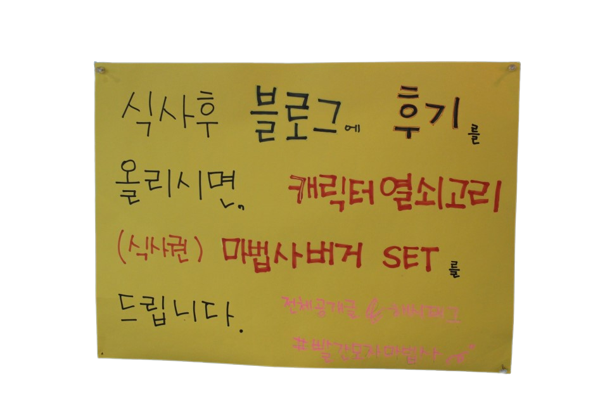 식사후 블로그에 후기를
올리시면,, 캐릭터열쇠고리
(식사권) 마법사버거 SET를
드립니다.
전체공개글 & 해시태그